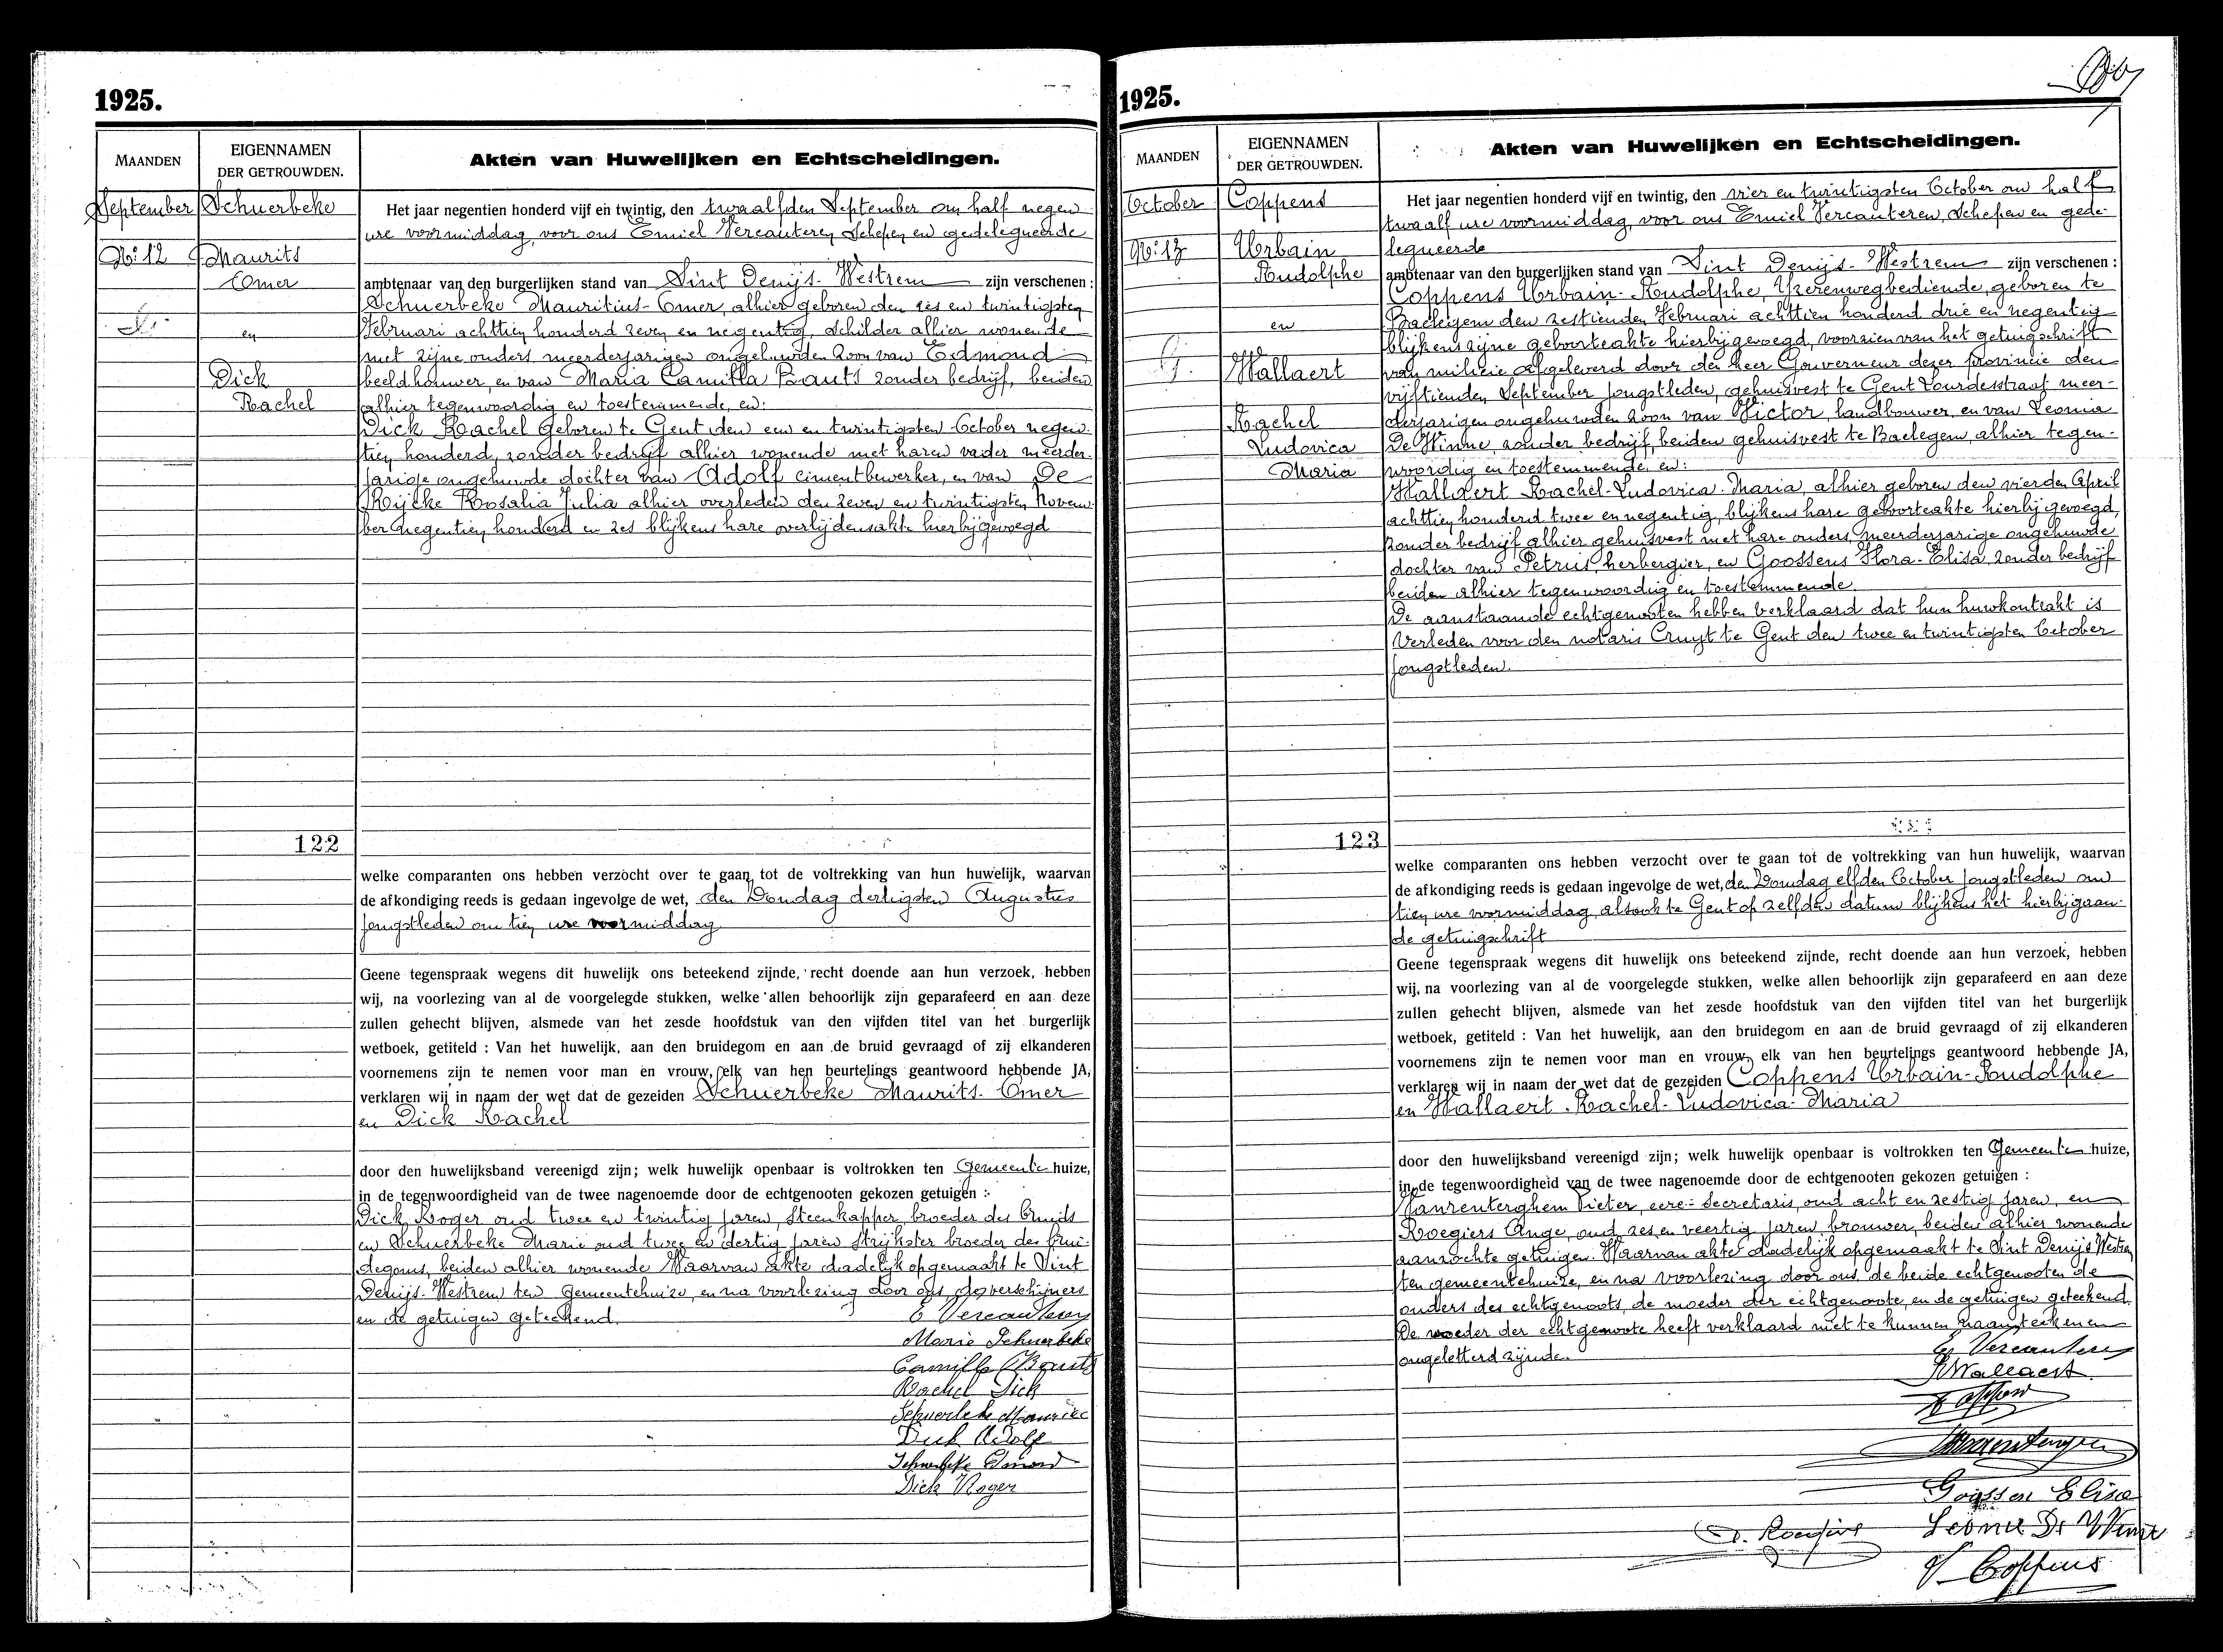 1925.
MAANDEN
EIGENNAMEN
DER GETROUWDEN.
Akten van Huwelijken en Echtscheidingen.
September
Schuerbeke
No: 12
Maurits
Omer
en
Dick
Rachel
Het jaar negentien honderd vijf en twintig, den twaalfden September om half negen
ure voormiddag, voor ons Emiel Vercauteren Schepen en gedelegueerde
ambtenaar van den burgerlijken stand van Sint Denijs-Westrem zijn verschenen :
Schuerbeke Mauritius-Omer, alhier geboren den zes en twintigsten
Februari achttien honderd zeven en negentig, schilder alhier wonende
met zijne ouders, meerderjarigen ongehuwden zoon van Edmond
beeldhouwer, en van Maria Camilla Bauts zonder bedrijf, beiden
alhier tegenwoordig en toestemmende, en:
Dick Rachel geboren te Gent den een en twintigsten October negen
tien honderd, zonder bedrijf alhier wonende met haren vader meerder-
jarige ongehuwde dochter van Adolf cimentbewerker, en van De
Rijcke Rosalia Julia alhier overleden den zeven en twintigsten Novem-
ber negentien honderd en zes blijkens hare overlijdensakte hierbijgevoegd
122
welke comparanten ons hebben verzocht over te gaan tot de voltrekking van hun huwelijk, waarvan
de afkondiging reeds is gedaan ingevolge de wet, den Zondag dertigsten Augustus
jongstleden om tien ure voormiddag
Geene tegenspraak wegens dit huwelijk ons beteekend zijnde, recht doende aan hun verzoek, hebben
wij, na voorlezing van al de voorgelegde stukken, welke allen behoorlijk zijn geparafeerd en aan deze
zullen gehecht blijven, alsmede van het zesde hoofdstuk van den vijfden titel van het burgerlijk
wetboek, getiteld : Van het huwelijk, aan den bruidegom en aan de bruid gevraagd of zij elkanderen
voornemens zijn te nemen voor man en vrouw, elk van hen beurtelings geantwoord hebbende JA,
verklaren wij in naam der wet dat de gezeiden Schuerbeke Maurits-Omer
en Dick Rachel
door den huwelijksband vereenigd zijn; welk huwelijk openbaar is voltrokken ten Gemeente huize,
in de tegenwoordigheid van de twee nagenoemde door de echtgenooten gekozen getuigen :
Dick Roger oud twee en twintig jaren, steenkapper, broeder des bruids
en Schuerbeke Marie oud twee en dertig jaren strijkster broeder des brui-
degoms, beiden alhier wonende Waarvan akte dadelijk opgemaakt te Sint
Denijs-Westrem ten Gemeentehuize, en na voorlezing door ons, de verschijners
en de getuigen geteekend.
E Vercauteren
Marie Schuerbeke
Camille Bauts
Rachel Dick
Schuerbeke Maurice
Dick Adolf
Schuerbeke Edmond
Dick Roger
1925.
MAANDEN
EIGENNAMEN
DER GETROUWDEN.
Akten van Huwelijken en Echtscheidingen.
October
Coppens
No: 13
Urbain
Rudolphe
en
G.
Wallaert
Rachel
Ludovica
Maria
Het jaar negentien honderd vijf en twintig, den vier en twintigsten October om half
twaalf ure voormiddag, voor ons Emiel Vercauteren, Schepen en gede-
legueerde
ambtenaar van den burgerlijken stand van Sint Denijs-Westrem zijn verschenen :
Coppens Urbain-Rudolphe, Yzerenwegbediende, geboren te
Baelegem den zestienden Februari achttien honderd drie en negentig
blijkens zijne geboorteakte hierbijgevoegd, voorzien van het getuigschrift
van milicie afgeleverd door den heer Gouverneur dezer provincie den
vijftienden September jongstleden, gehuisvest te Gent Lourdesstraat meer-
derjarigen ongehuwden zoon van Victor, landbouwer, en van Leonia
De Winne, zonder bedrijf, beiden gehuisvest te Baelegem, alhier tegen-
woordig en toestemmende, en:
Wallaert Rachel-Ludovica-Maria, alhier geboren den vierden April
achttien honderd twee en negentig, blijkens hare geboorteakte hierbijgevoegd,
zonder bedrijf alhier gehuisvest met hare ouders, meerderjarige ongehuwde
dochter van Petrus, herbergier, en Goossens Flora-Elisa, zonder bedrijf
beiden alhier tegenwoordig en toestemmende
De aanstaande echtgenooten hebben verklaard dat hun huwkontrakt is
verleden voor den notaris Cruyt te Gent den twee en twintigsten October
jongstleden.
123
welke comparanten ons hebben verzocht over te gaan tot de voltrekking van hun huwelijk, waarvan
de afkondiging reeds is gedaan ingevolge de wet, den Zondag elfden October jongstleden om
tien ure voormiddag, alsook te Gent op zelfden datum blijkens het hierbijgaan-
de getuigschrift
Geene tegenspraak wegens dit huwelijk ons beteekend zijnde, recht doende aan hun verzoek, hebben
wij, na voorlezing van al de voorgelegde stukken, welke allen behoorlijk zijn geparafeerd en aan deze
zullen gehecht blijven, alsmede van het zesde hoofdstuk van den vijfden titel van het burgerlijk
wetboek, getiteld : Van het huwelijk, aan den bruidegom en aan de bruid gevraagd of zij elkanderen
voornemens zijn te nemen voor man en vrouw, elk van hen beurtelings geantwoord hebbende JA,
verklaren wij in naam der wet dat de gezeiden Coppens Urbain-Rudolphe
en Wallaert Rachel-Ludovica-Maria
door den huwelijksband vereenigd zijn; welk huwelijk openbaar is voltrokken ten Gemeente huize,
in de tegenwoordigheid van de twee nagenoemde door de echtgenooten gekozen getuigen :
Vanrenterghem Pieter, eere-secretaris, oud acht en zestig jaren, en
Roegiers Ange, oud zes en veertig jaren brouwer, beiden alhier wonende
aanzochte getuigen. Waarvan akte dadelijk opgemaakt te Sint Denijs Westrem
ten gemeentehuize, en na voorlezing door ons, de beide echtgenooten de
ouders des echtgenoots, de moeder der echtgenoote, en de getuigen geteekend.
De moeder der echtgenoote heeft verklaard niet te kunnen naamteekenen
ongeletterd zijnde.
E Vercauteren
R Wallaert
Goossen Elisa
Leonie De Winne
V Coppens